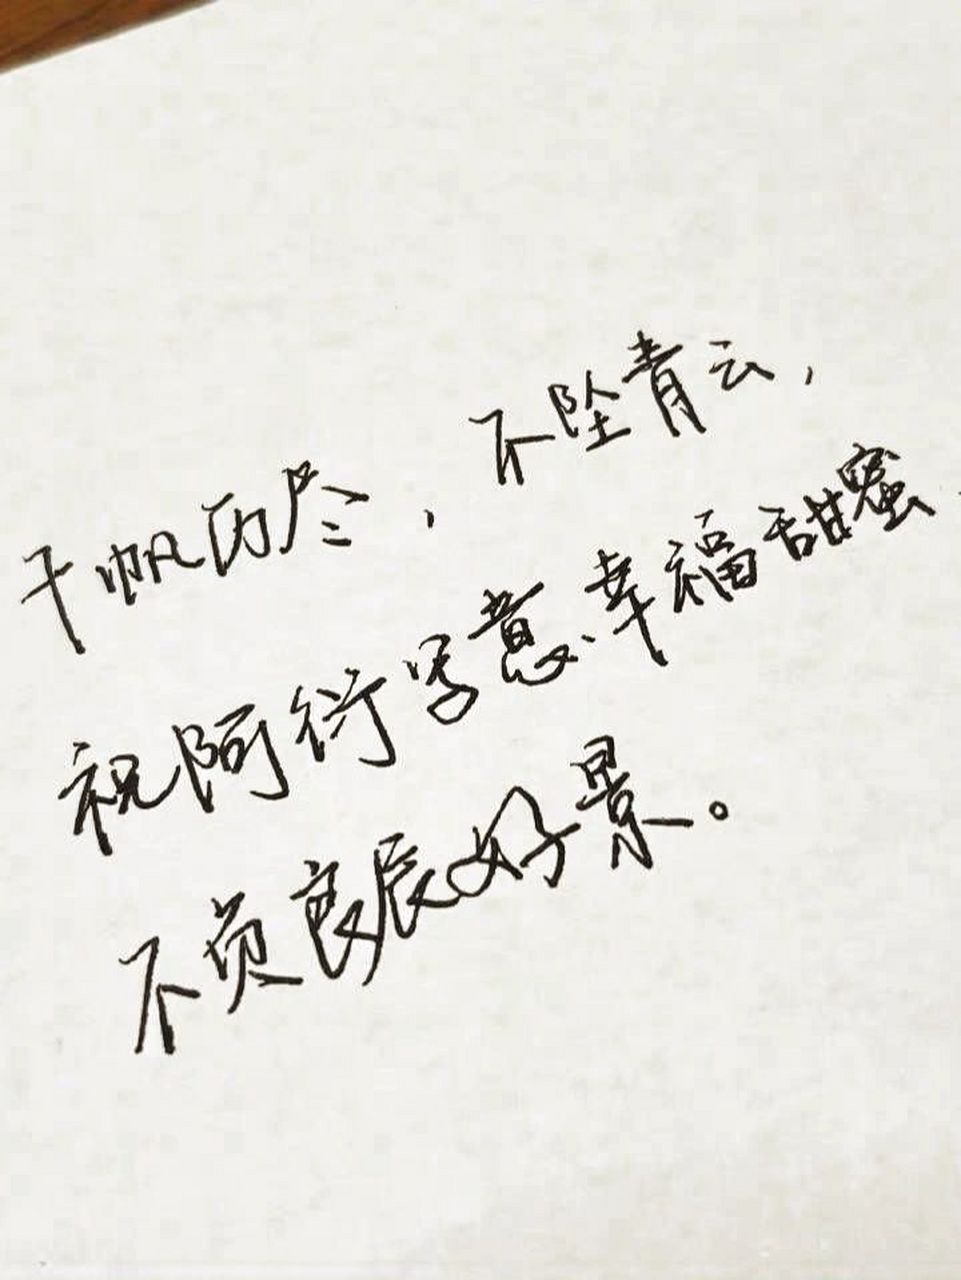 千帆历尽，不坠青云，
祝阿衍写意、幸福甜蜜，
不负良辰好景。